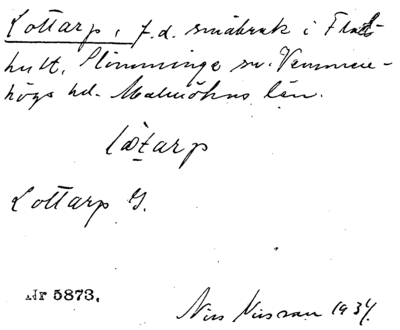 Lottarp, f.d. småbruk i Flat-
hult, Slimminge sn. Vemmen-
högs hd. Malmöhus län.
Lottarp G.
Nr 5873.
Nils Nilsson 1934.